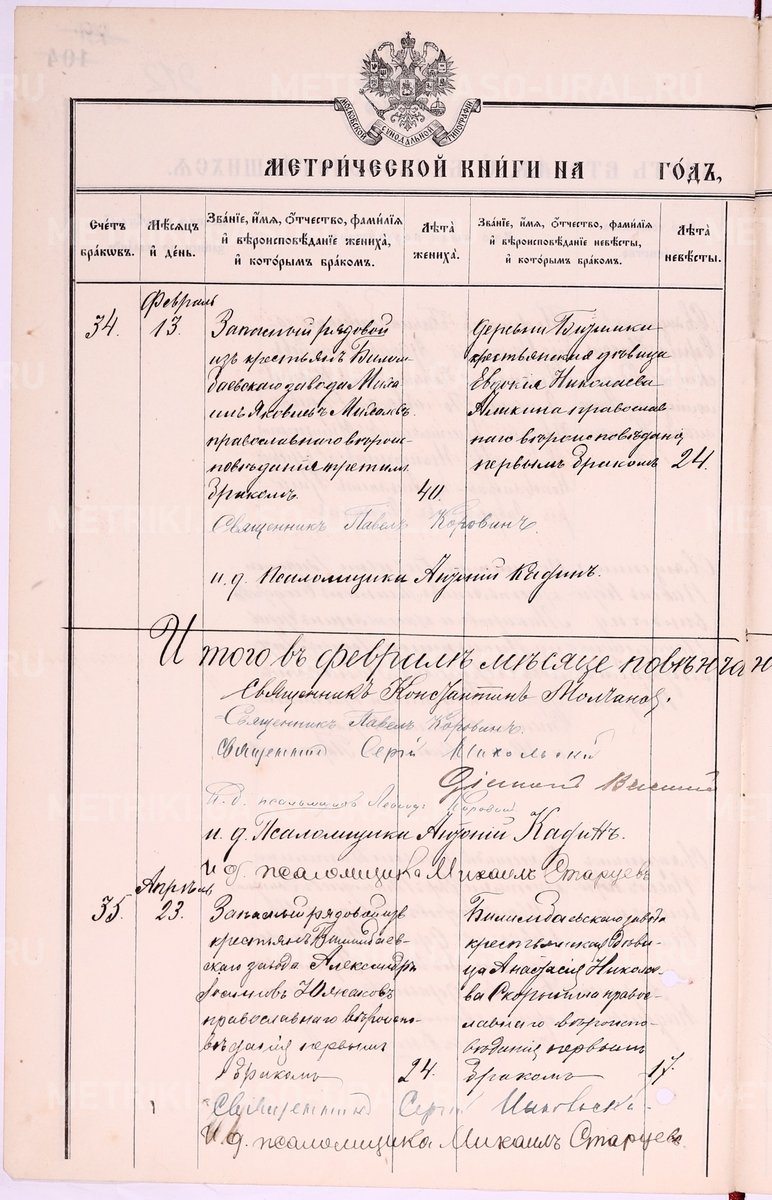 104
МОСКОВСКОЙ СѴНОДАЛЬНОЙ ТИПОГРАФІИ
МЕТРИ́ЧЕСКОЙ КНИ́ГИ НА ГО́ДЪ,
Сче́тъ бра́кѡвъ.
Мѣ́сяцъ и҆ де́нь.
Зва́нїе, и҆́мѧ, ѻ҆́тчество, фами́лїѧ и҆ вѣроисповѣ́данїе жениха̀, и҆ кото́рымъ бра́комъ.
Лѣ́та жениха̀.
Зва́нїе, и҆́мѧ, ѻ҆́тчество, фами́лїѧ и҆ вѣроисповѣ́данїе невѣ́сты, и҆ кото́рымъ бра́комъ.
Лѣ́та невѣ́сты.
Февраль
34. 13.
Запасный рядовой
изъ крестьянъ Билим
баевскаго завода Миха
илъ Яковлевъ
православнаго вѣроис-
повѣданія третьимъ
бракомъ 40.
деревни
крестьянская дѣвица
Евдокія Николаева
православ
наго вѣроисповѣданія,
первымъ бракомъ 24.
Священникъ Павелъ Коровинъ.
и. д. Псаломщика Андоній Кафинъ.
Итого въ февралѣ мѣсяцѣ повѣнчан
Священникъ Константинъ Молчанов.
Священникъ Павелъ Коровинъ.
Священник Сергій
и. д. псаломщика
и. д. Псаломщика Андоній Кафинъ.
И. д. псаломщика Михаилъ Старцевъ
Апрѣль
35. 23.
Запасный рядовой изъ
крестьянъ Билимбаев-
скаго завода Александръ
православнаго вѣроиспо-
вѣданія первымъ
бракомъ 24.
Билимбаевскаго завода
крестьянская дѣви-
ца Анастасія Никола-
ева правос-
лавнаго вѣроиспо-
вѣданія первымъ
бракомъ 17.
Священник Сергій
И. д. псаломщика Михаилъ Старцевъ
METRIKI.UASO-URAL.RU